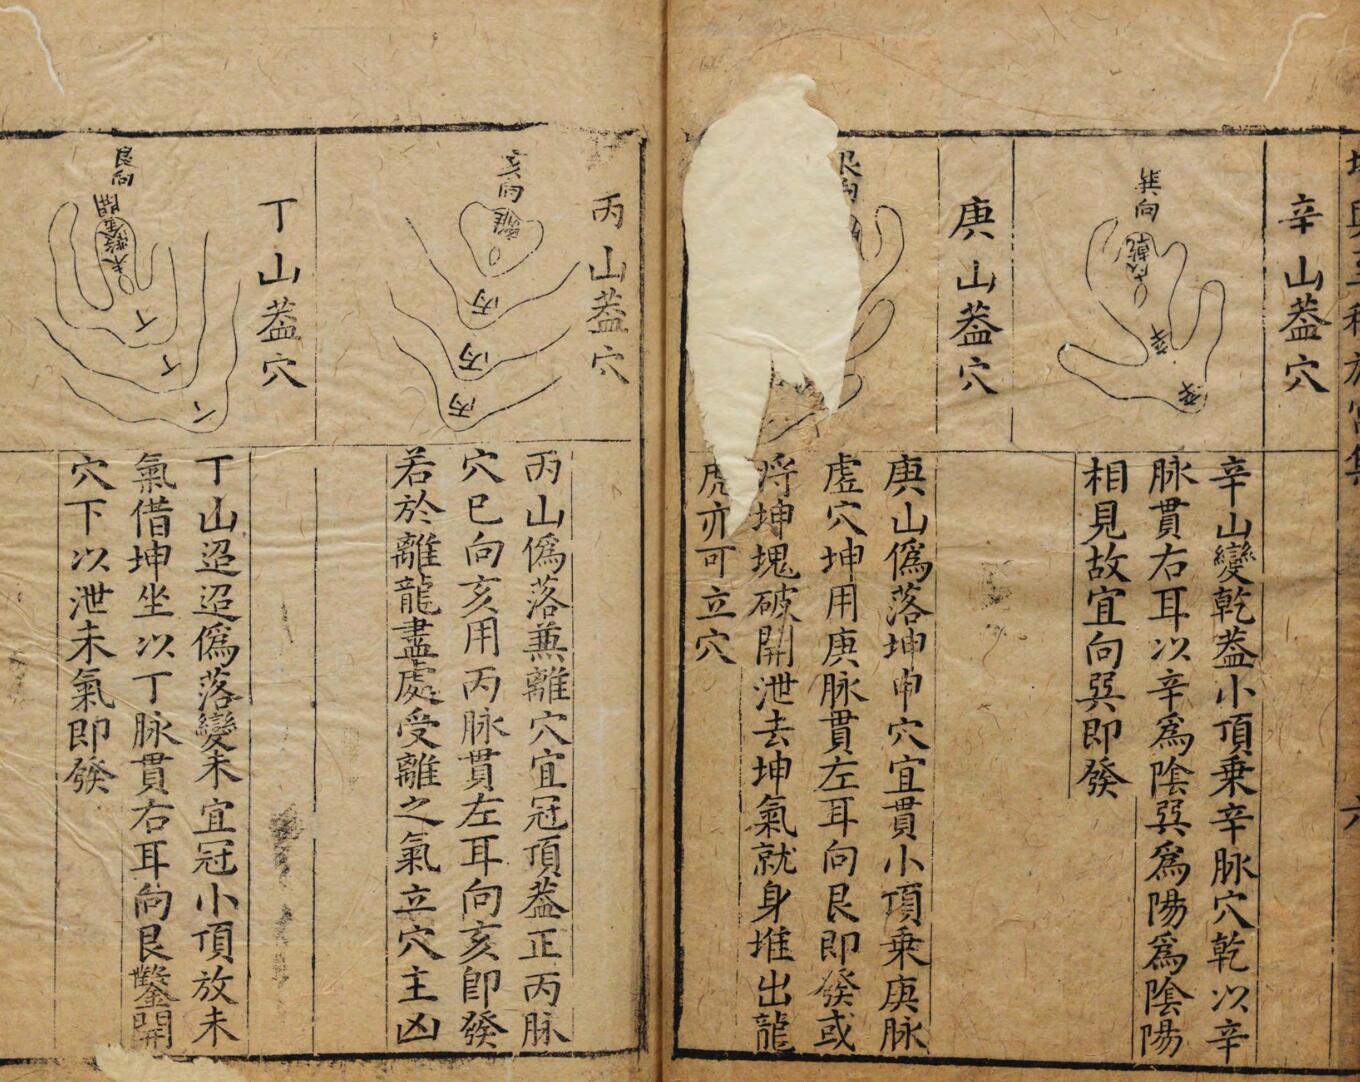 辛山葢穴
巽向
乾
辛
辛
辛山變乾葢小頂乗辛脉穴乾以辛
脉貫右耳以辛爲陰巽爲陽爲陰陽
相見故宜向巽即發
庚山葢穴
艮向
庚山僞落坤申穴宜貫小頂乗庚脉
虛穴坤用庚脉貫左耳向艮即發或
将坤塊破開泄去坤氣就身堆出龍
虎亦可立穴
丙山葢穴
亥向
離
丙
丙
丙
丙山僞落兼離穴宜冠頂葢正丙脉
穴巳向亥用丙脉貫左耳向亥卽發
若於離龍盡處受離之氣立穴主凶
丁山葢穴
艮向
鑿開
未
丁
丁
丁
丁山迢迢僞落變未宜冠小頂放未
氣借坤坐以丁脉貫右耳向艮鑿開
穴下以泄未氣即發